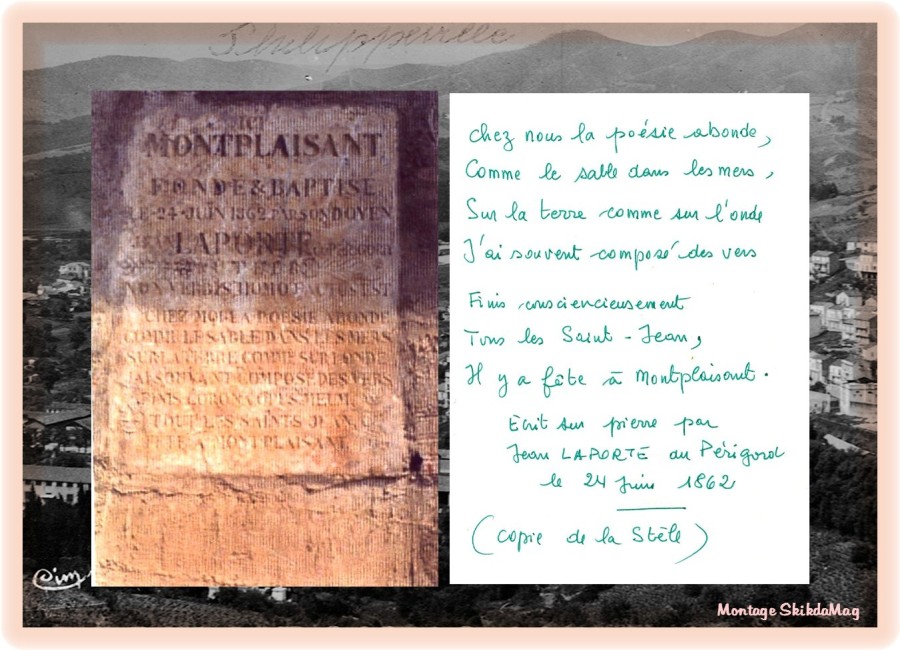 Philippeville
ICI
MONTPLAISANT
FONDE & BAPTISE
LE·24·JUIN 1862 PAR SON DOYEN
LAPORTE
NON VERBIS HOMO FACTUS EST
CHEZ MOI LA POESIE ABONDE
COMME LE SABLE DANS LES MERS
SUR LA TERRE COMME SUR L'ONDE
J'AI SOUVANT COMPOSE DES VERS
TOUT LES SAINTS JEAN
FETE A MONTPLAISANT
Chez nous la poésie abonde,
Comme le sable dans les mers,
Sur la terre comme sur l'onde
J'ai souvent composé des vers
Finis consciencieusement
Tous les Saint-Jean,
Il y a fête à Montplaisant.
Ecrit sur pierre par
Jean LAPORTE du Périgord
le 24 Juin 1862
(Copie de la Stèle)
Montage SkikdaMag